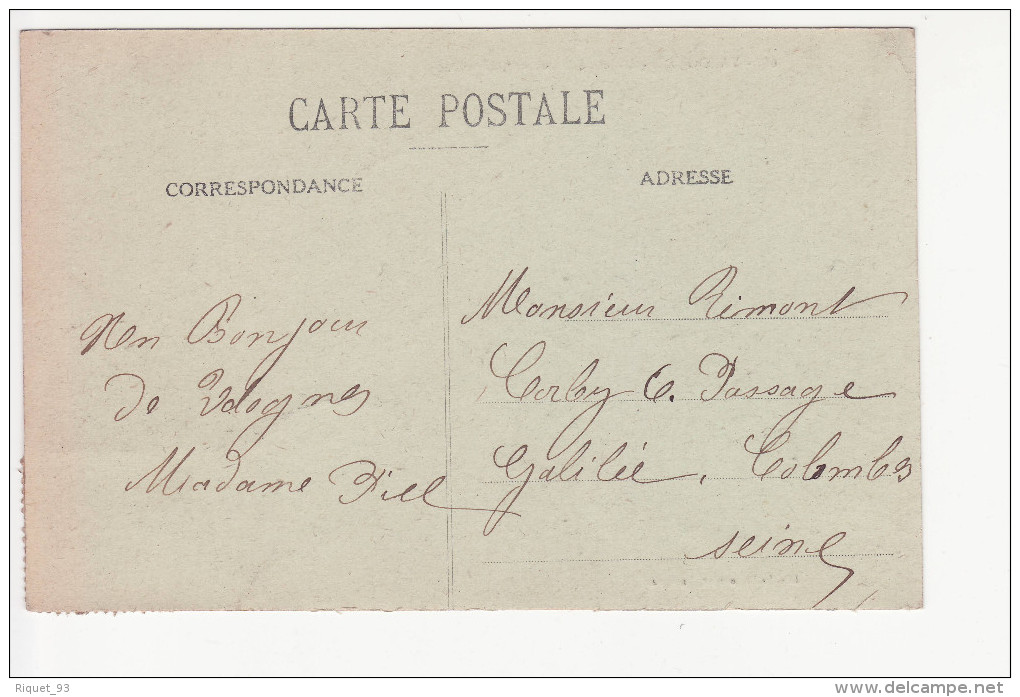 CARTE POSTALE
CORRESPONDANCE
ADRESSE
Un Bonjour
de Valognes
Madame Piel
Monsieur Rimont
Corby 6. Passage
Galilée, Colombes
Seine
Riquet_93
www.delcampe.net